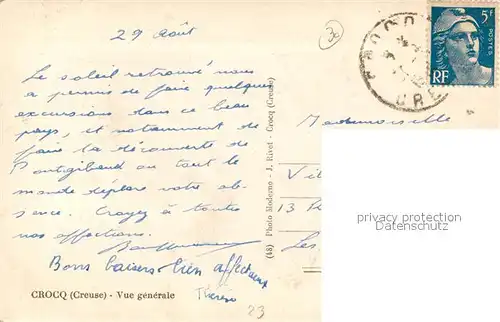 29 Août
Le soleil retrouvé nous
a permis de faire quelques
excursions dans ce beau
pays, et notamment de
faire la découverte de
Pontgibaud où tout le
monde déplore votre ab-
sence. Croyez à toutes
nos affections.
Bons baisers bien affectueux
Thérèse
CROCQ (Creuse) - Vue générale
23
(48) Photo Moderne - J. Rivet - Crocq (Creuse)
30
5F
POSTES
RF
CROCQ
CRE
Mademoiselle
13
Les
privacy protection
Datenschutz